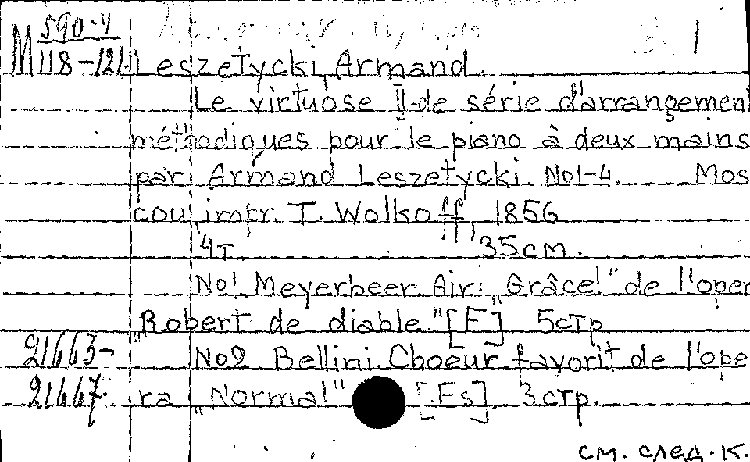 М 590-4
118-121
Leszetycki, Armand.
Le virtuose II-de série d'arrangemen
méthodiques pour le piano à deux mains
par Armand Leszetycki. No1-4. Mos
cou, impr. T. Wolkoff, 1856
4т. 35см.
No1 Meyerbeer. Air: „Grâce!" de l'oper
„Robert de diable" [F] 5стр
21663- No2 Bellini. Choeur favorit de l'ope
21667. ra „Norma!" [Es] 3стр.
см. след. К.